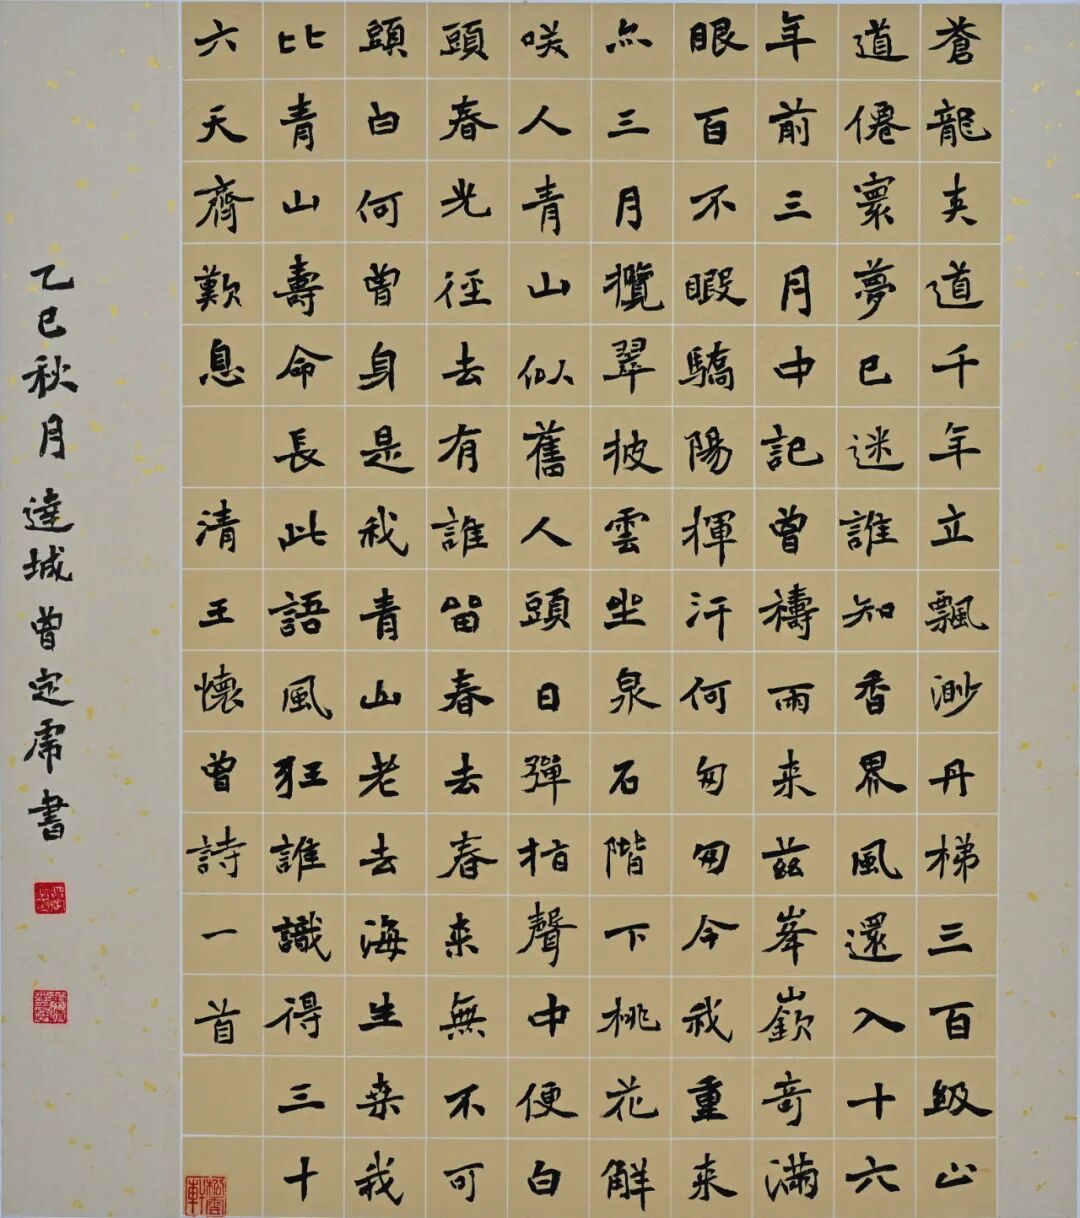 蒼龍夾道千年立飄渺丹梯三百級山
道僊寰夢已迷誰知香界風還入十六
年前三月中記曾禱雨来茲峯嶔奇滿
眼百不暇驕陽揮汗何匆匆今我重来
亦三月攬翠披雲坐泉石階下桃花解
咲人青山似舊人頭日彈指聲中便白
頭春光徑去有誰留春去春来無不可
頭白何曾身是我青山老去海生桒我
比青山壽命長此語風狂誰識得三十
六天齊歎息 清王懷曾詩一首
乙巳秋月達城曾定書
松雲軒